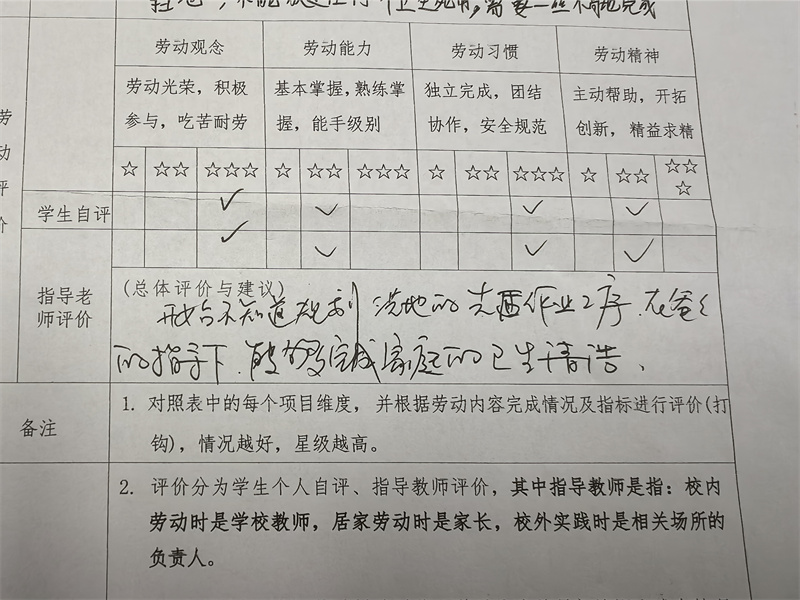 劳动观念 劳动能力 劳动习惯 劳动精神
劳动光荣，积极 基本掌握，熟练掌 独立完成，团结 主动帮助，开拓
参与，吃苦耐劳 握，能手级别 协作，安全规范 创新，精益求精
劳
动
评
价
☆ ☆☆ ☆☆☆ ☆ ☆☆ ☆☆☆ ☆ ☆☆ ☆☆☆ ☆ ☆☆ ☆☆
☆
学生自评 ✓ ✓ ✓ ✓
✓ ✓ ✓ ✓
指导老
师评价
(总体评价与建议)
开始不知道规划 洗地的先 作业工序.在爸爸
的指导下.能够完成家庭的卫生清洁、
备注
1. 对照表中的每个项目维度，并根据劳动内容完成情况及指标进行评价(打
钩)，情况越好，星级越高。
2. 评价分为学生个人自评、指导教师评价，其中指导教师是指：校内
劳动时是学校教师，居家劳动时是家长，校外实践时是相关场所的
负责人。